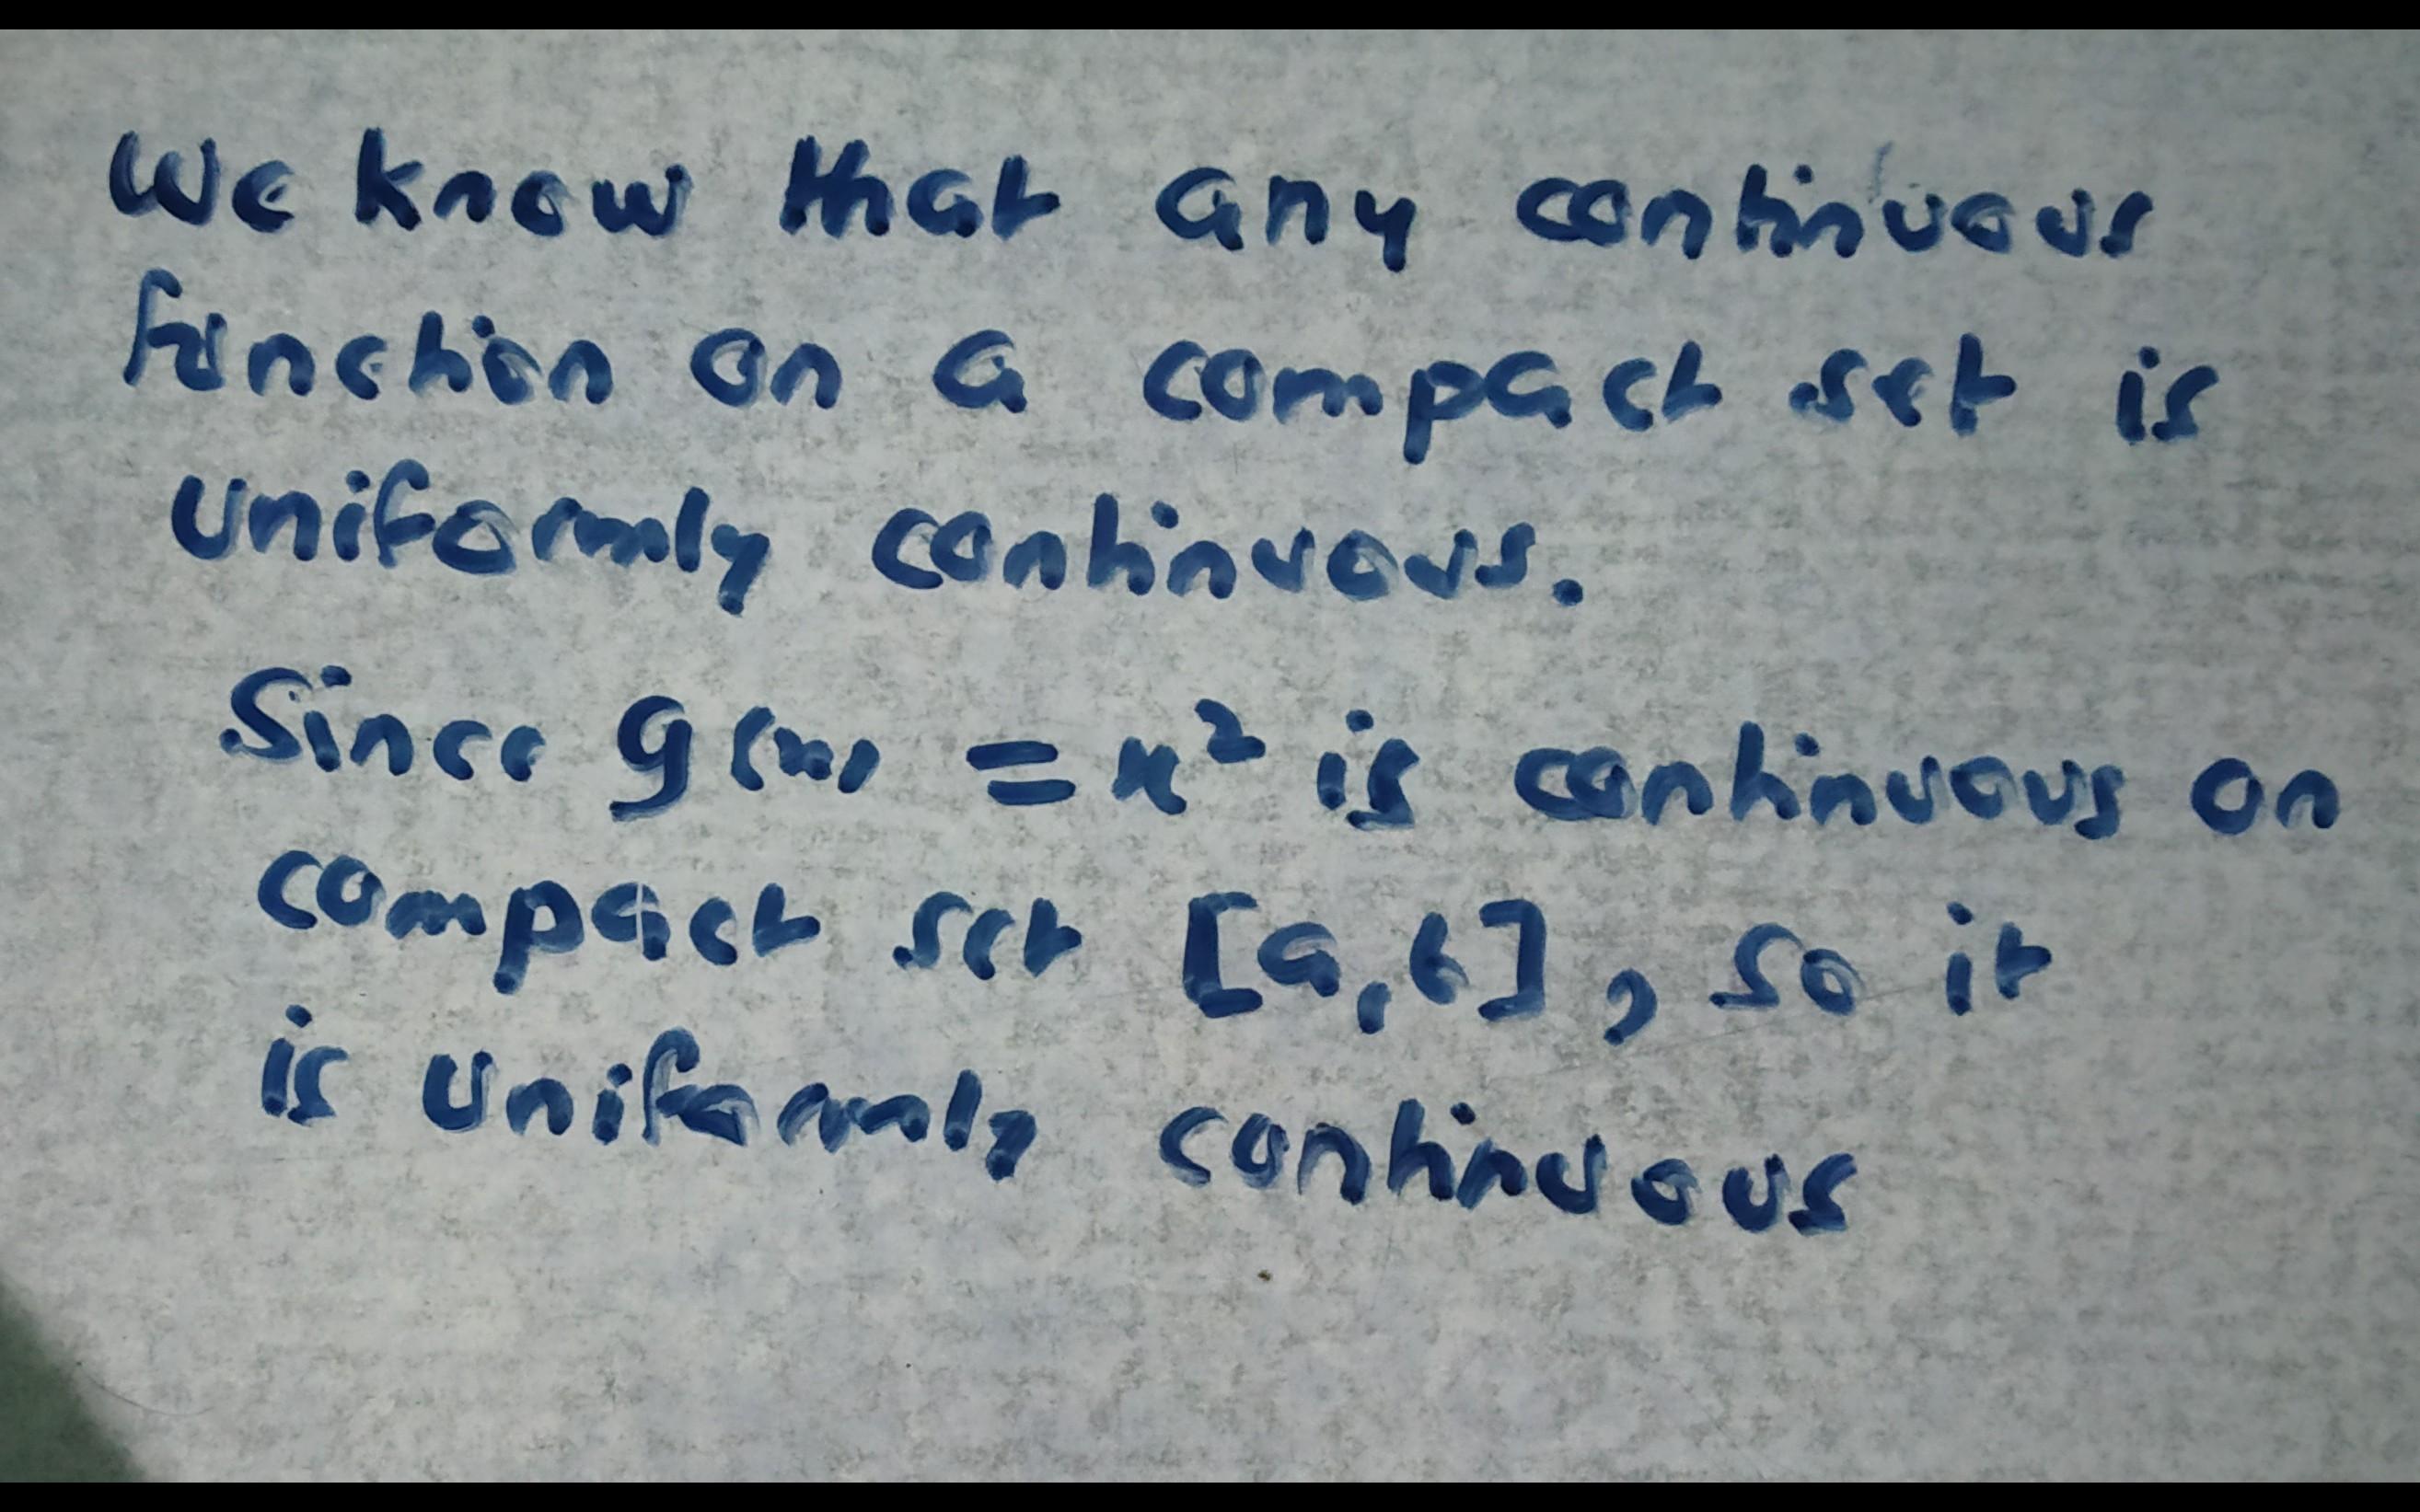 We know that any continuous
function on a compact set is
uniformly continuous.
Since g(x) = x² is continuous on
compact set [a,b], so it
is uniformly continuous